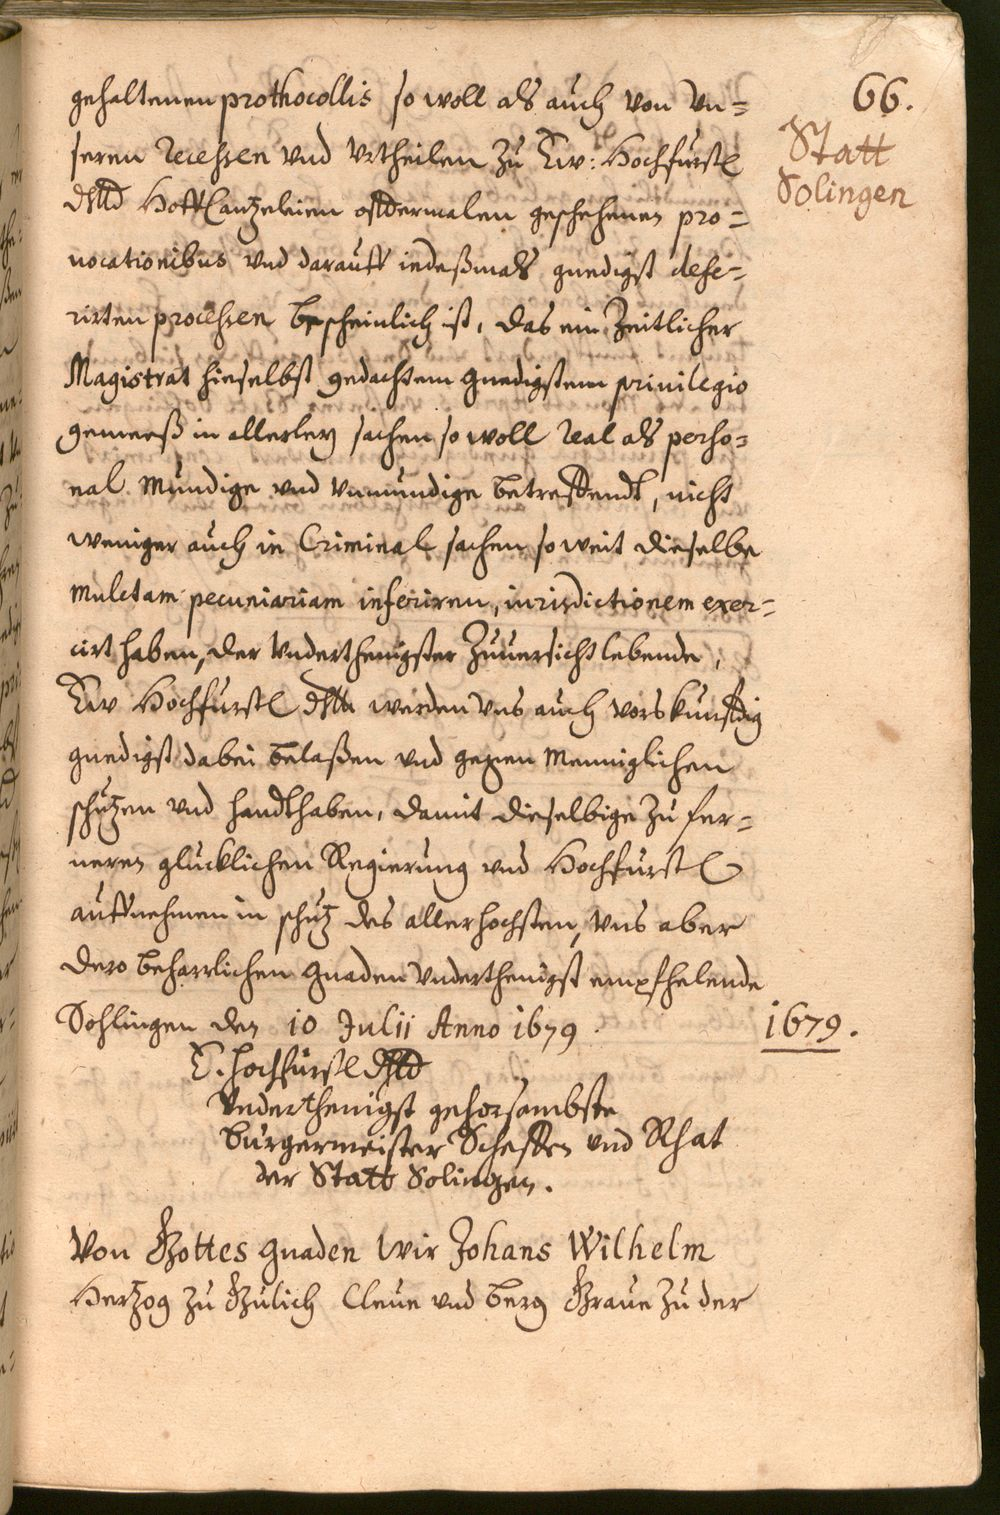 66.
Statt
Solingen
gehaltenen prothocollis so woll als auch von un=
seren recessen und urtheilen zu Ew: Hochfurstl
dhlld HoffCantzeleien offtermalen geschehenen pro=
vocationibus und darauff iedeßmals gnedigst defe=
rirten processen bescheinlich ist, das ein zeitlicher
Magistrat hieselbst gedachtem gnedigstem privilegio
gemeeß in allerley sachen so woll real als perso=
nal mundige und unmundige betreffendt, nicht
weniger auch in Criminal sachen so weit dieselbe
mulctam pecuniariam inferiren, iurisdictionem exer=
cirt haben, der underthenigster zuversicht lebende,
Ew Hochfurstl dhlt werden uns auch vorskunfftig
gnedigst dabei belaßen und gegen menniglichen
schutzen und handthaben, damit dieselbige zu fer=
neren glücklichen Regierung und Hochfurstl
auffnehmen in schutz des allerhochsten, uns aber
dero beharrlichen gnaden underthenigst empfhelende
Sohlingen den 10 Julii Anno 1679.
1679.
E. hochfurstl dhlld
underthenigst gehorsambste
burgermeister Scheffen und Rhat
der Statt Solingen.
Von Gottes gnaden Wir Johans Wilhelm
Hertzog zu Gulich Cleve und berg Grave zu der